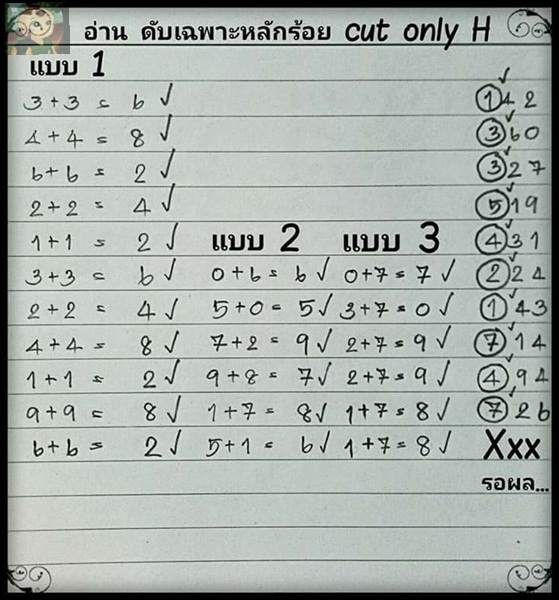 อ่าน ดับเฉพาะหลักร้อย cut only H
แบบ 1
3+3 = 6 ✓ 142
4+4 = 8 ✓ 360
6+6 = 2 ✓ 327
2+2 = 4 ✓ 519
1+1 = 2 ✓ แบบ 2 แบบ 3 431
3+3 = 6 ✓ 0+6 = 6 ✓ 0+7 = 7 ✓ 224
2+2 = 4 ✓ 5+0 = 5 ✓ 3+7 = 0 ✓ 143
4+4 = 8 ✓ 7+2 = 9 ✓ 2+7 = 9 ✓ 714
1+1 = 2 ✓ 9+8 = 7 ✓ 2+7 = 9 ✓ 494
9+9 = 8 ✓ 1+7 = 8 ✓ 1+7 = 8 ✓ 726
6+6 = 2 ✓ 5+1 = 6 ✓ 1+7 = 8 ✓ Xxx
รอผล...